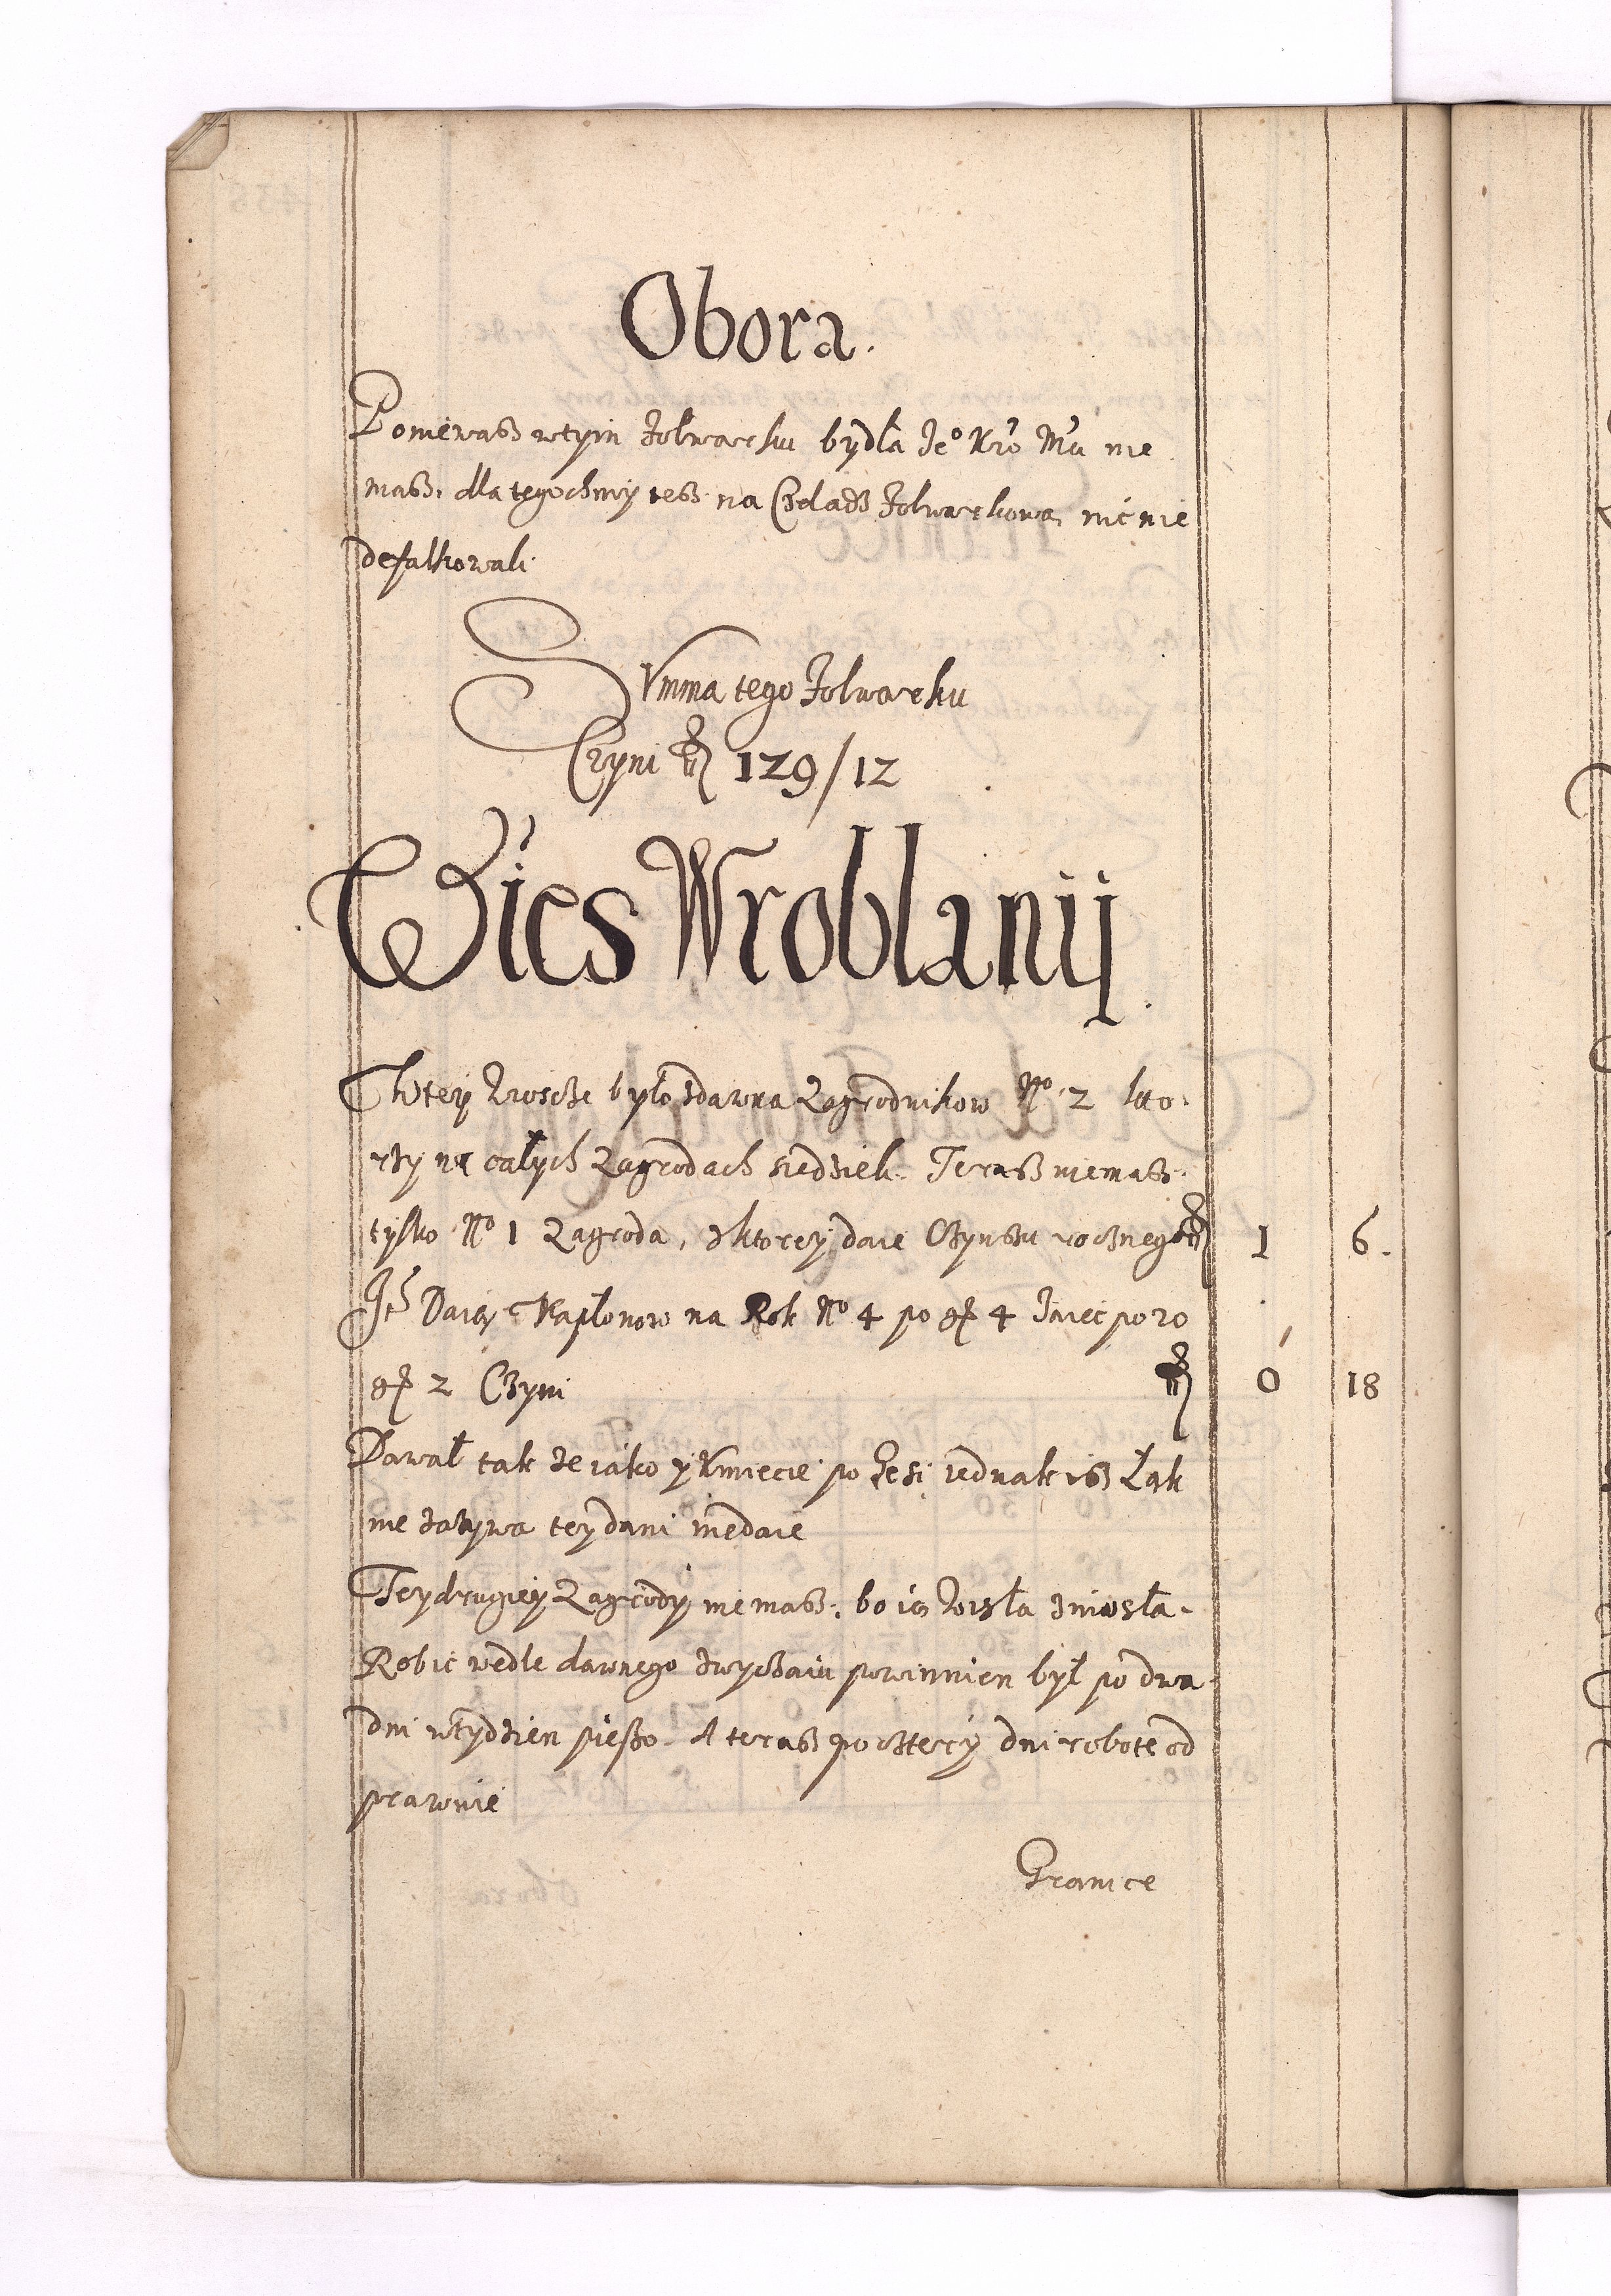 Obora.
Poniewasz wtym folwarku bydła Jeº Kró Mći nie
masz. dla tegochmy tesz na Czeladz folwarkową nic nie
defalkowali.
Summa tego folwarku
Czyni fl 129/12
Wies Wroblanij.
Wtey Wioscze było zdawna Zagrodnikow Nº 2 kto-
rzy na całych Zagrodach siedzieli. Terasz niemasz
tylko Nº 1 Zagroda, z ktorey daie Czynszu rocznego fl 1 6.
Jtē Daią Kapłonow na Rok Nº 4 po gr 4 Jaiec po 20
gr 2 Czyni fl 0 18
Dawał tak ze iako y Kmiecie po gesi iednak isz Łąk
nie zazywa tey dani niedaie
Tey drugiey Zagrody niemasz. bo ią Wisła zniosła.
Robic wedle dawnego zwyczaiu powinnien był po dwa
dni wtydzien pieszo. A terasz po cztery dni robote od
prawuie
Granice